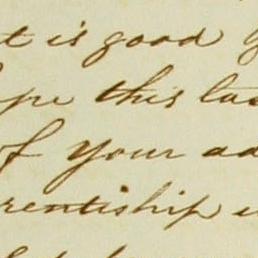 t is good
this las
of your ad
rentiship